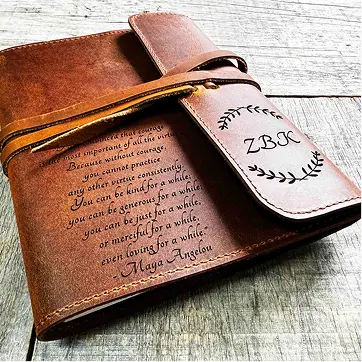 convinced that courage
most important of all the virtues
Because without courage,
you cannot practice
any other virtue consistently.
You can be kind for a while;
you can be generous for a while;
you can be just for a while,
or merciful for a while,
even loving for a while."
- Maya Angelou
ZBK